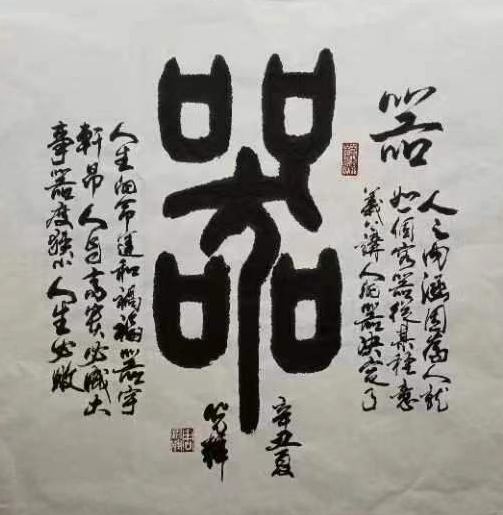 器
人之内涵因为人就
如個容器從某種意
義上講人的器決定了
器
人生的命運和禍福器宇
軒昂人自高貴必成大
事器度狭小人生必敗
辛丑夏